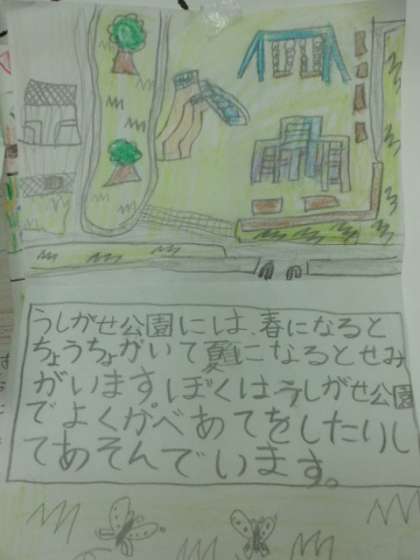 うしがせ公園には、春になると
ちょうちょがいて夏になるとせみ
がいます。ぼくはうしがせ公園
でよくかべあてをしたりし
てあそんでいます。